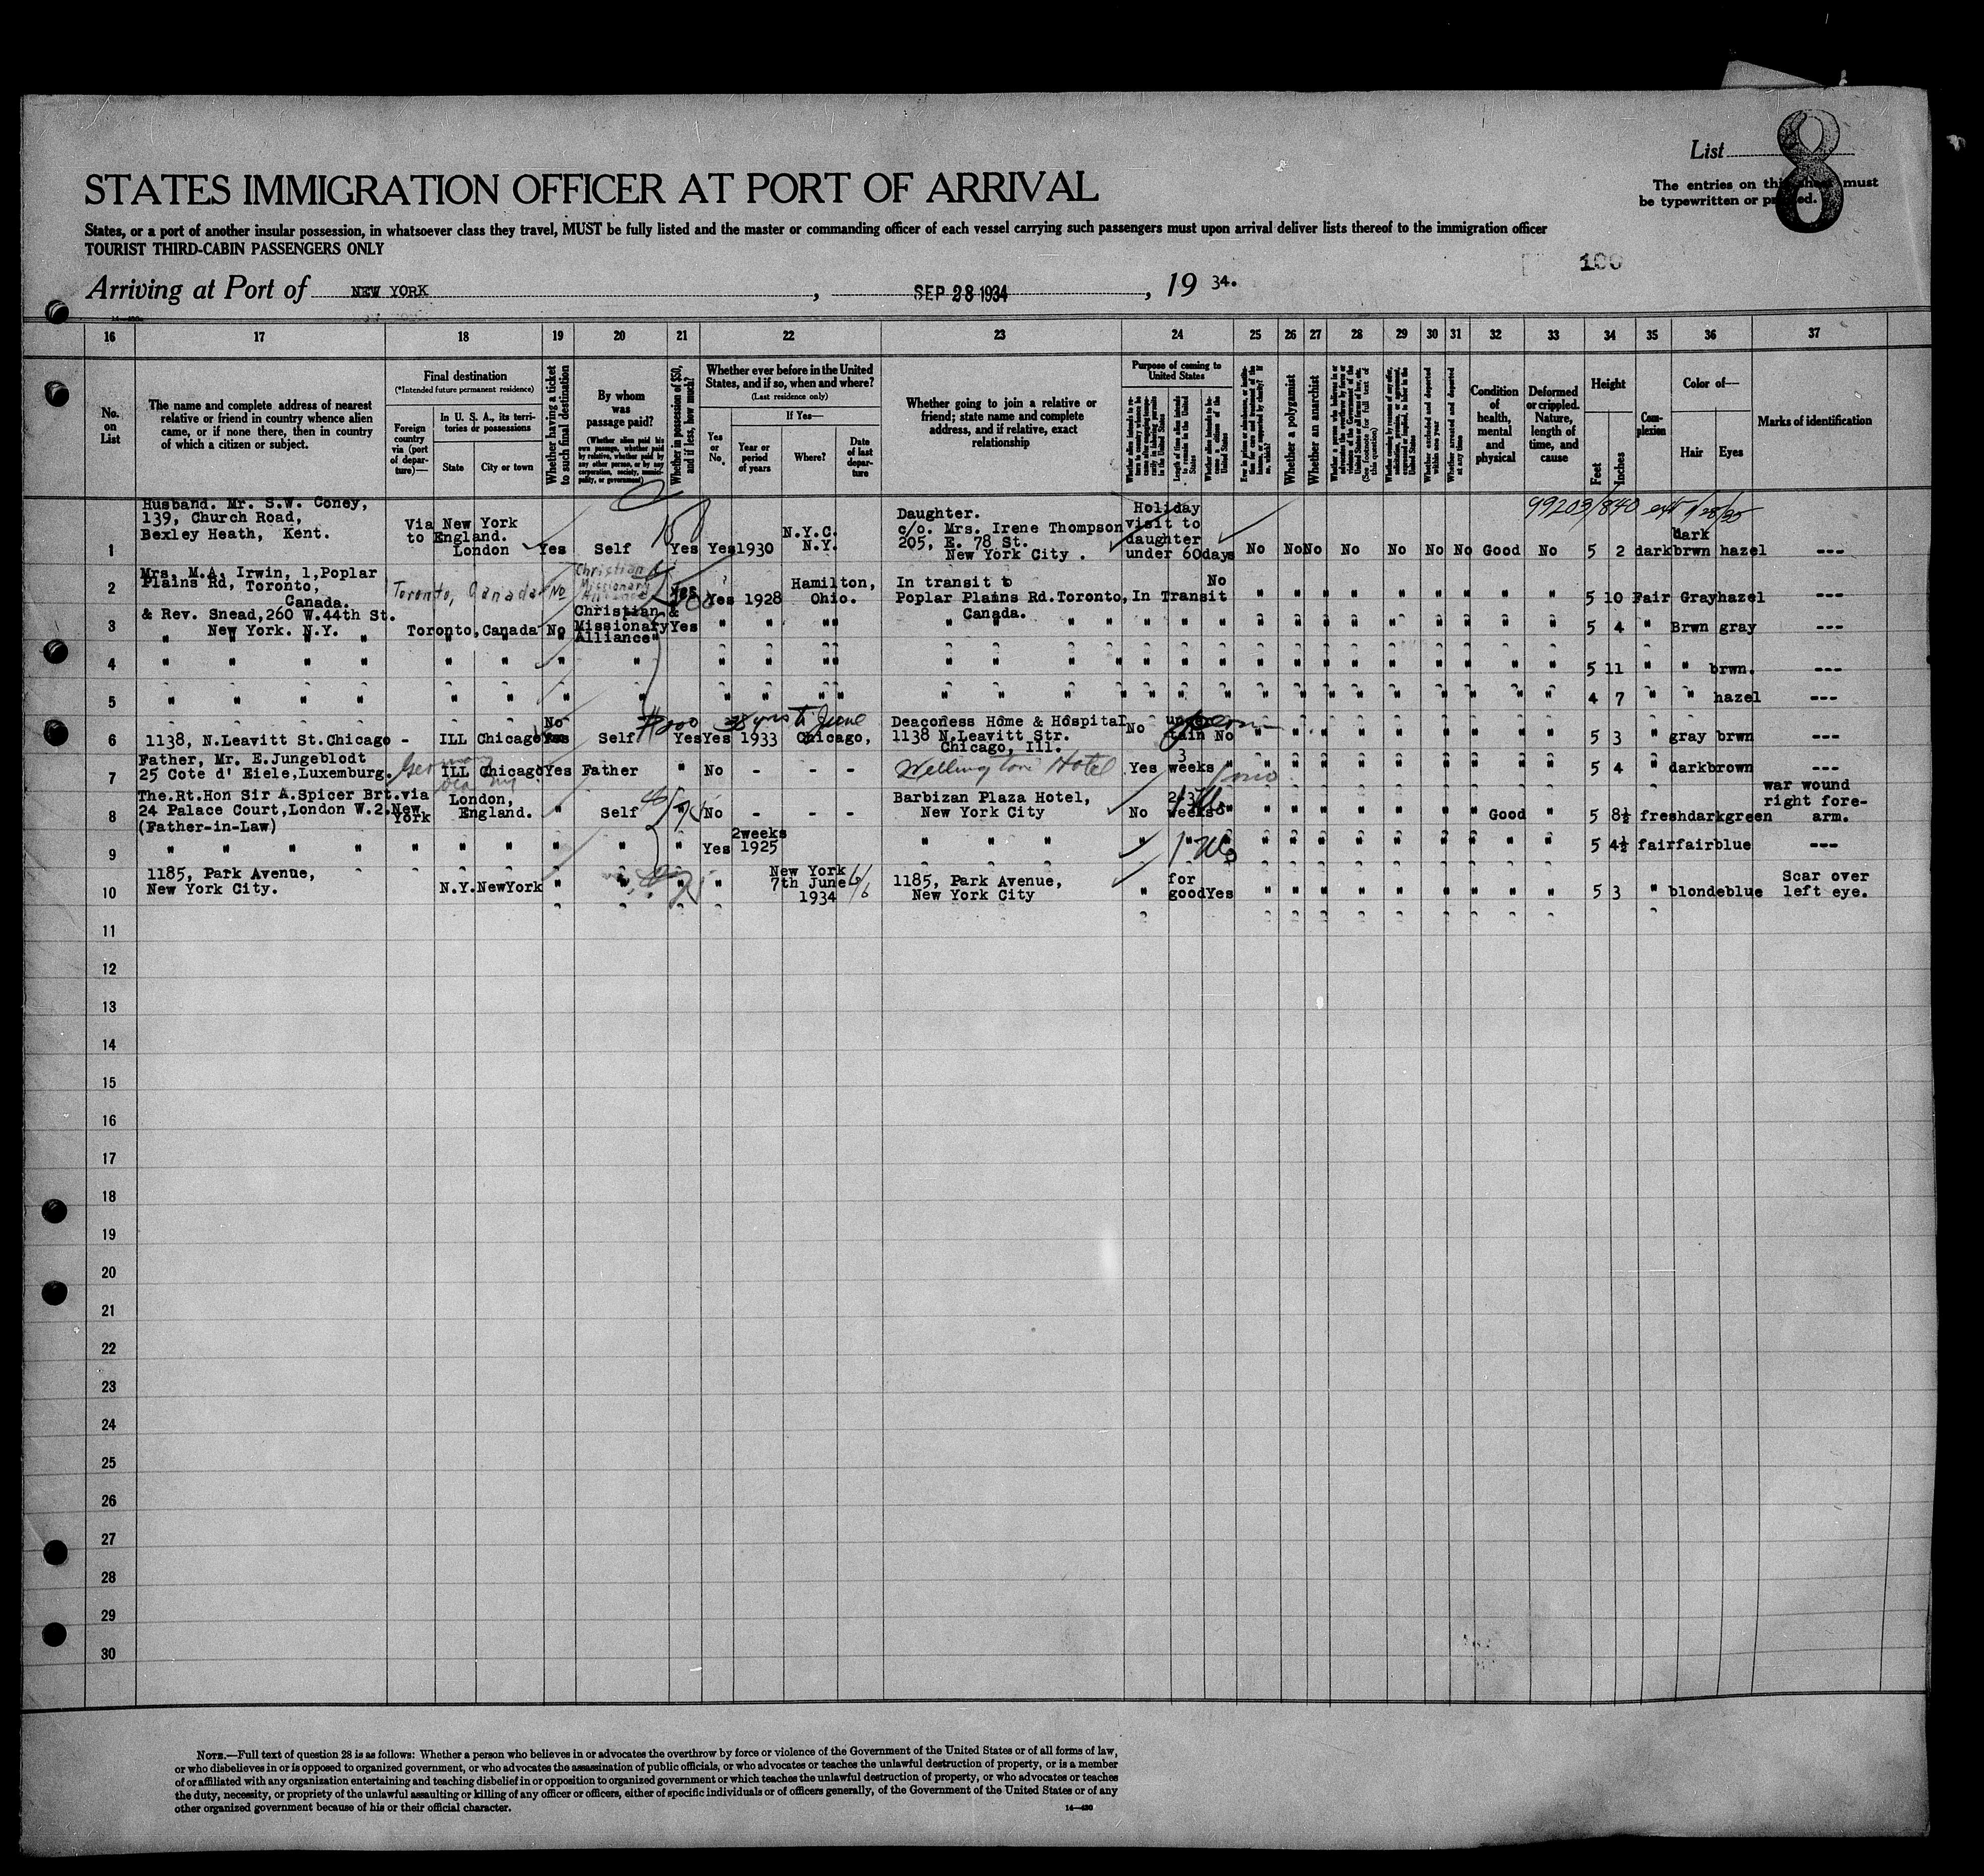 List 8
STATES IMMIGRATION OFFICER AT PORT OF ARRIVAL
The entries on this sheet must
be typewritten or printed.
States, or a port of another insular possession, in whatsoever class they travel, MUST be fully listed and the master or commanding officer of each vessel carrying such passengers must upon arrival deliver lists thereof to the immigration officer
TOURIST THIRD-CABIN PASSENGERS ONLY
100
Arriving at Port of NEW YORK, SEP 28 1934, 19 34.
16 17 18 19 20 21 22 23 24 25 26 27 28 29 30 31 32 33 34 35 36 37
No. on List
The name and complete address of nearest
relative or friend in country whence alien
came, or if none there, then in country
of which a citizen or subject.
Final destination
(*Intended future permanent residence)
Foreign country via (port of departure)—
In U. S. A., its territories or possessions
State
City or town
Whether having a ticket to such final destination
By whom was passage paid?
(Whether alien paid his own passage, whether paid by relative, whether paid by any other person, or by any corporation, society, municipality, or government)
Whether in possession of $50, and if less, how much?
Whether ever before in the United
States, and if so, when and where?
(Last residence only)
If Yes—
Yes or No.
Year or period of years
Where?
Date of last departure
Whether going to join a relative or
friend; state name and complete
address, and if relative, exact
relationship
Purpose of coming to United States
Whether a polygamist
Whether an anarchist
Condition of health, mental and physical
Deformed or crippled. Nature, length of time, and cause
Height
Feet
Inches
Complexion
Color of—
Hair
Eyes
Marks of identification
99203/840
1 Husband. Mr. S.W. Coney,
139, Church Road,
Bexley Heath, Kent.
Via New York
to England.
London
Yes Self Yes Yes 1930 N.Y.C.
N.Y.
Daughter.
c/o. Mrs. Irene Thompson
205, E. 78 St.
New York City .
Holiday
visit to
daughter
under 60days
No No No No No No No Good No 5 2 dark dark
brwn hazel ---
2 Mrs. M.A. Irwin, 1,Poplar
Plains Rd, Toronto,
Canada.
Toronto, Canada No Christian
Missionary
Alliance
Yes Yes 1928 Hamilton,
Ohio.
In transit to
Poplar Plains Rd.Toronto,
Canada.
In Transit No
" " " " " " " " " 5 10 Fair Gray hazel ---
3 & Rev. Snead,260 W.44th St.
New York. N.Y.
Toronto,Canada No Christian &
Missionary
Alliance
Yes " " " " " " " " " " " " " " " 5 4 " Brwn gray ---
4 " " " " " " " " " " " " " 5 11 " " brwn. ---
5 " " " " " " " " " " " " " 4 7 " " hazel ---
6 1138, N.Leavitt St.Chicago - ILL Chicago No
Yes
Self Yes Yes 1933 Chicago,
Deaconess Home & Hospital
1138 N.Leavitt Str.
Chicago, Ill.
No No " " " " " " " " " 5 3 " gray brwn ---
7 Father, Mr. E.Jungeblodt
25 Cote d' Eiele,Luxemburg.
Germany
ILL Chicago Yes Father " No - - -
Wellington Hotel
Yes 3
weeks " " " " " " " " " " 5 4 " dark brown ---
8 The.Rt.Hon Sir A.Spicer Brt.
24 Palace Court,London W.2.
(Father-in-Law)
via
New
York
London,
England.
" Self " No - - -
Barbizan Plaza Hotel,
New York City
No weeks " " " " " " " " Good " 5 8½ fresh dark green
war wound
right fore-
arm.
9 " " " " " " " " " " Yes 2weeks
1925
" " " " " " " " " " " " 5 4½ fair fair blue ---
10 1185, Park Avenue,
New York City.
N.Y. NewYork " " " " New York
7th June
1934
1185, Park Avenue,
New York City
" for
good Yes " " " " " " " " " 5 3 " blonde blue
Scar over
left eye.
11
12
13
14
15
16
17
18
19
20
21
22
23
24
25
26
27
28
29
30
NOTE.—Full text of question 28 is as follows: Whether a person who believes in or advocates the overthrow by force or violence of the Government of the United States or of all forms of law,
or who disbelieves in or is opposed to organized government, or who advocates the assassination of public officials, or who advocates or teaches the unlawful destruction of property, or is a member
of or affiliated with any organization entertaining and teaching disbelief in or opposition to organized government or which teaches the unlawful destruction of property, or who advocates or teaches
the duty, necessity, or propriety of the unlawful assaulting or killing of any officer or officers, either of specific individuals or of officers generally, of the Government of the United States or of any
other organized government because of his or their official character.
14—430